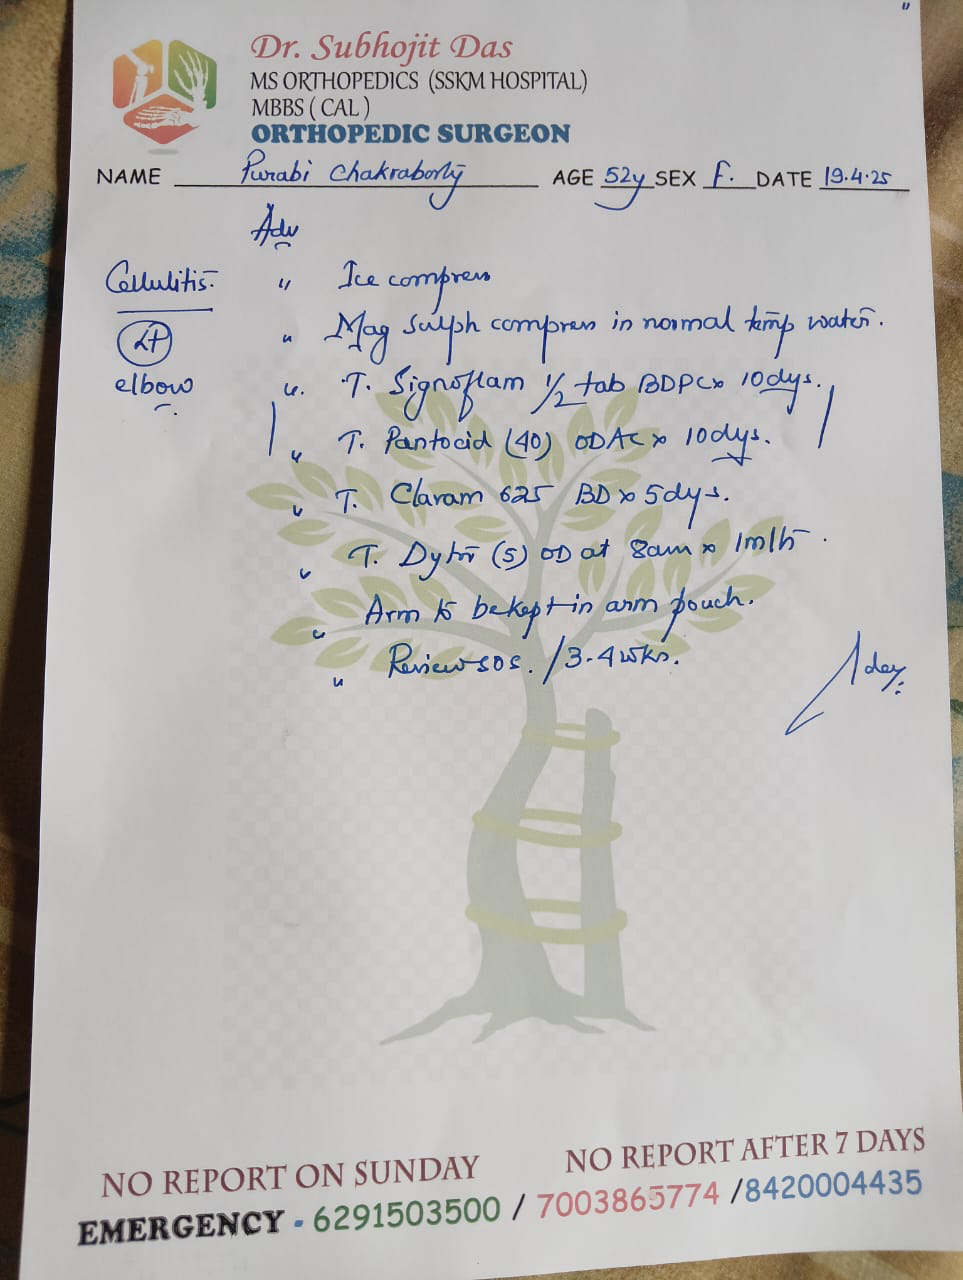 Dr. Subhojit Das
MS ORTHOPEDICS (SSKM HOSPITAL)
MBBS ( CAL )
ORTHOPEDIC SURGEON
NAME Purabi Chakraborty AGE 52y SEX F. DATE 19.4.25
Adv
Cellulitis.
Lt
elbow
" Ice compress
" Mag sulph compress in normal temp water.
" T. Signoflam 1/2 tab BDPC x 10dys.
" T. Pantocid (40) ODAC x 10dys.
" T. Clavam 625 BD x 5dys.
" T. Dytor (5) OD at 8am x 1mth.
" Arm to be kept in arm pouch.
" Review sos. / 3-4 wks.
NO REPORT ON SUNDAY NO REPORT AFTER 7 DAYS
EMERGENCY - 6291503500 / 7003865774 /8420004435